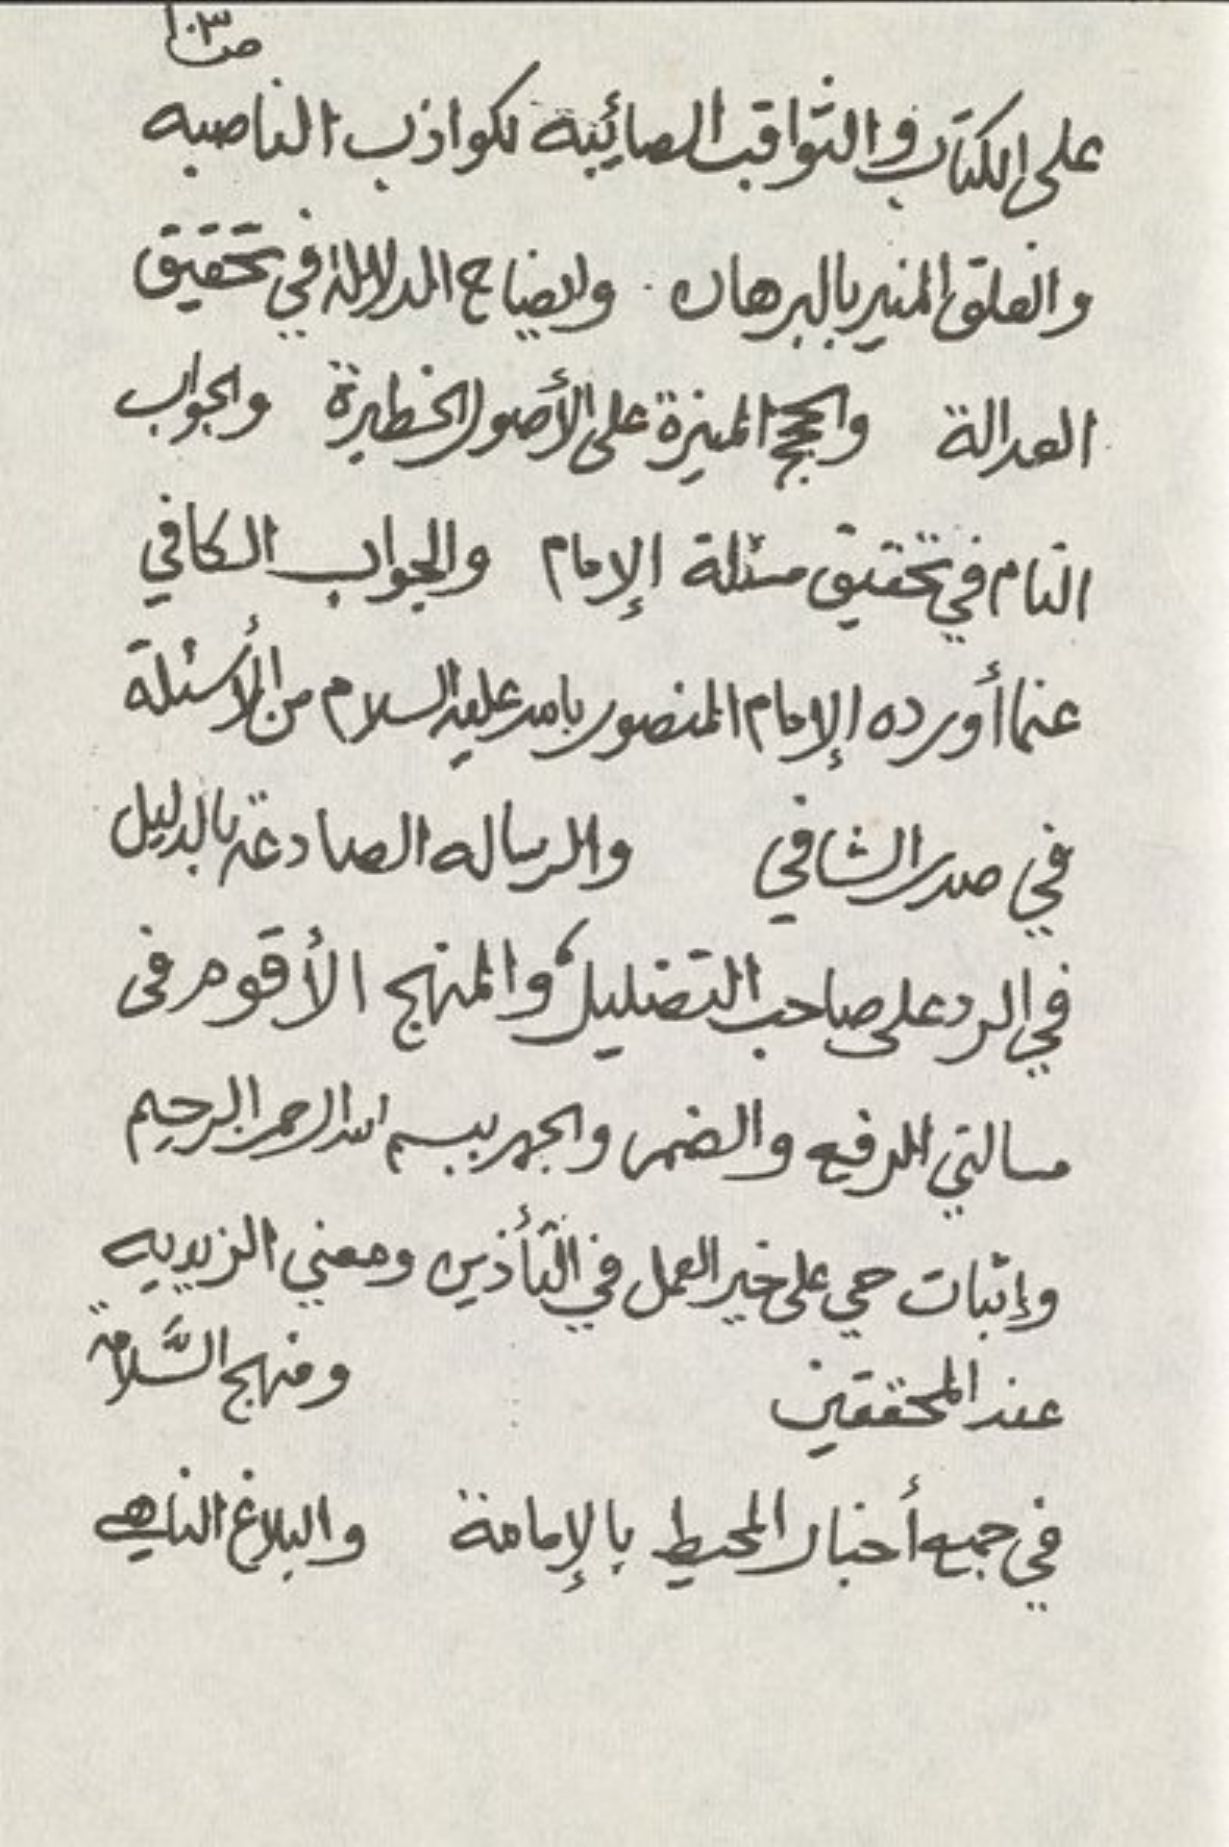 ص١٠٣
على الكتاب والثواقب الصائبة لكواذب الناصبه
والفلق المنير بالبرهان وايضاح الدلالة في تحقيق
العدالة والحجج المنيرة على الأصول الخطيرة والجواب
التام في تحقيق مسئلة الإمام والجواب الكافي
عما أورده الإمام المنصور بالله عليه السلام من الأسئلة
في صدر الشافي والرساله الصادعة بالدليل
في الرد على صاحب التضليل، والمنهج الأقوم في
مسالتي الرفع والضم والجهر ببسم الله الرحمن الرحيم
وإثبات حي على خير العمل في التأذين ومعنى الزيديه
عند المحققين ومنهج السَّلامة
في جميع أخبار المحيط بالإمامة والبلاغ الناهي